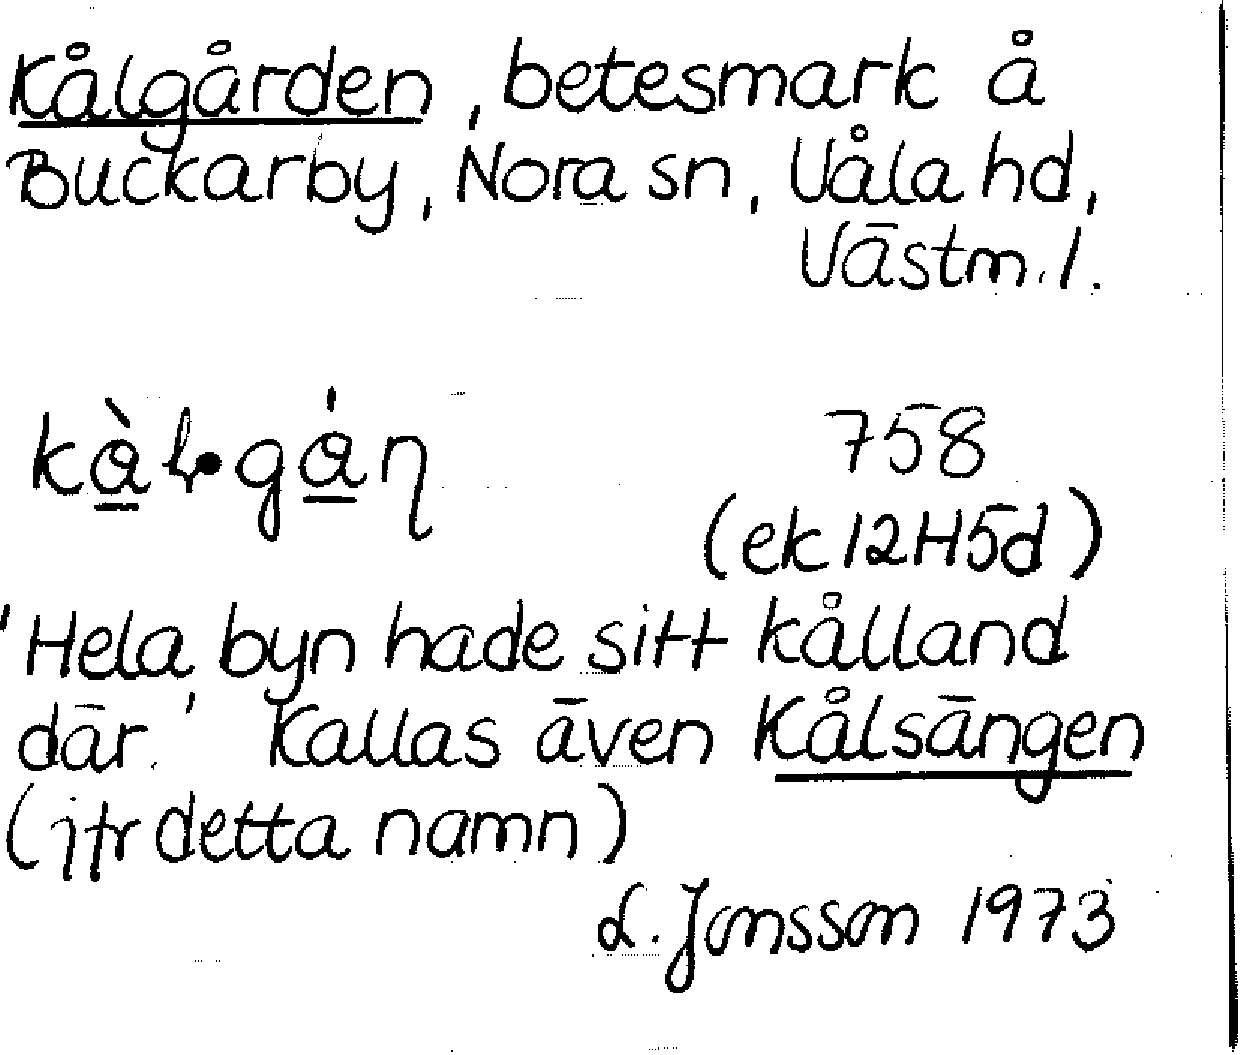 Kålgården, betesmark å
Buckarby, Nora sn, Våla hd,
Västm. l.
758
(ek 12H5d)
'Hela byn hade sitt kålland
där.' Kallas även Kålsängen
(jfr detta namn)
L. Jonsson 1973